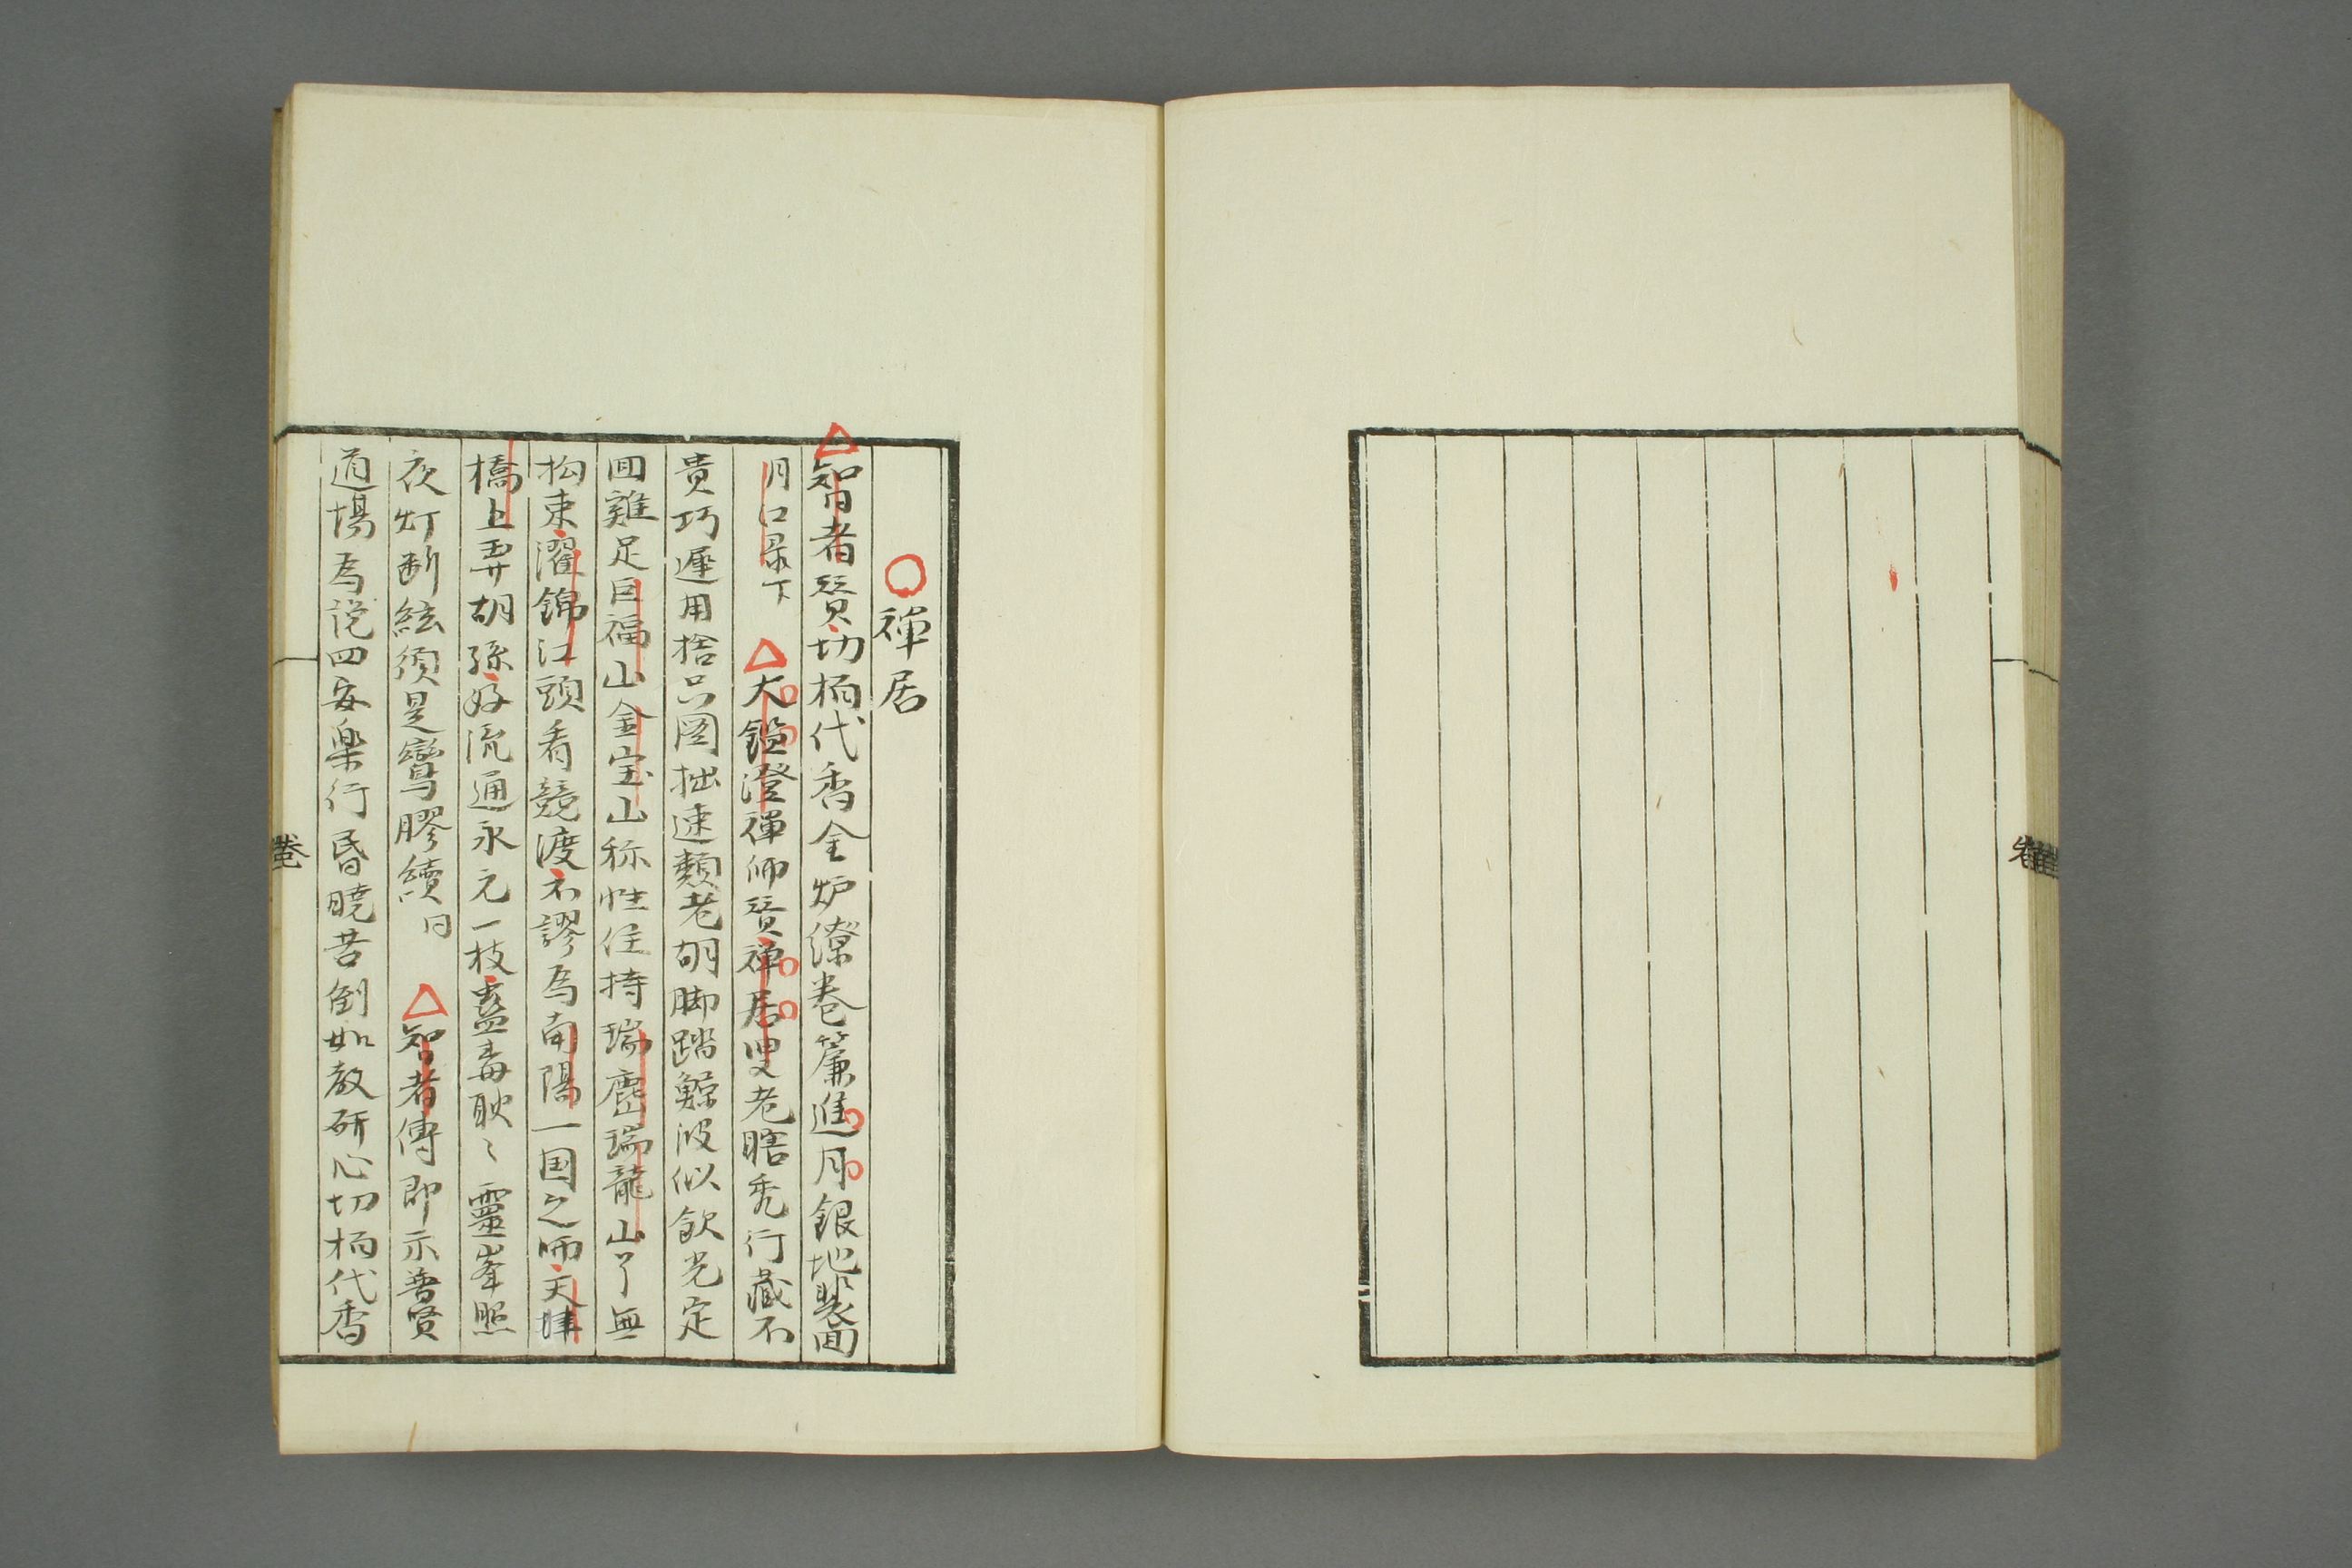 禅居
智者賛切栢代香全炉燎巻簾進月銀地裴囬
月口录下　大鑑澄禅师賛禅居叟老瞎秃行藏不
贵巧遲用捨只图拙速類老胡脚踏鯨波似飲光定
囬雞足巨福山金宝山称性住持瑞鹿山瑞龍山了無
拘束濯錦江頭看競渡不謬為南陽一国之师天津
橋上弄胡孫好流通永元一枝蠱毒耿〻靈峯照
夜灯断絃須是鸞膠續 同　智者傳即示普賢
道場為説四安樂行昏曉苦倒如教研心切栢代香